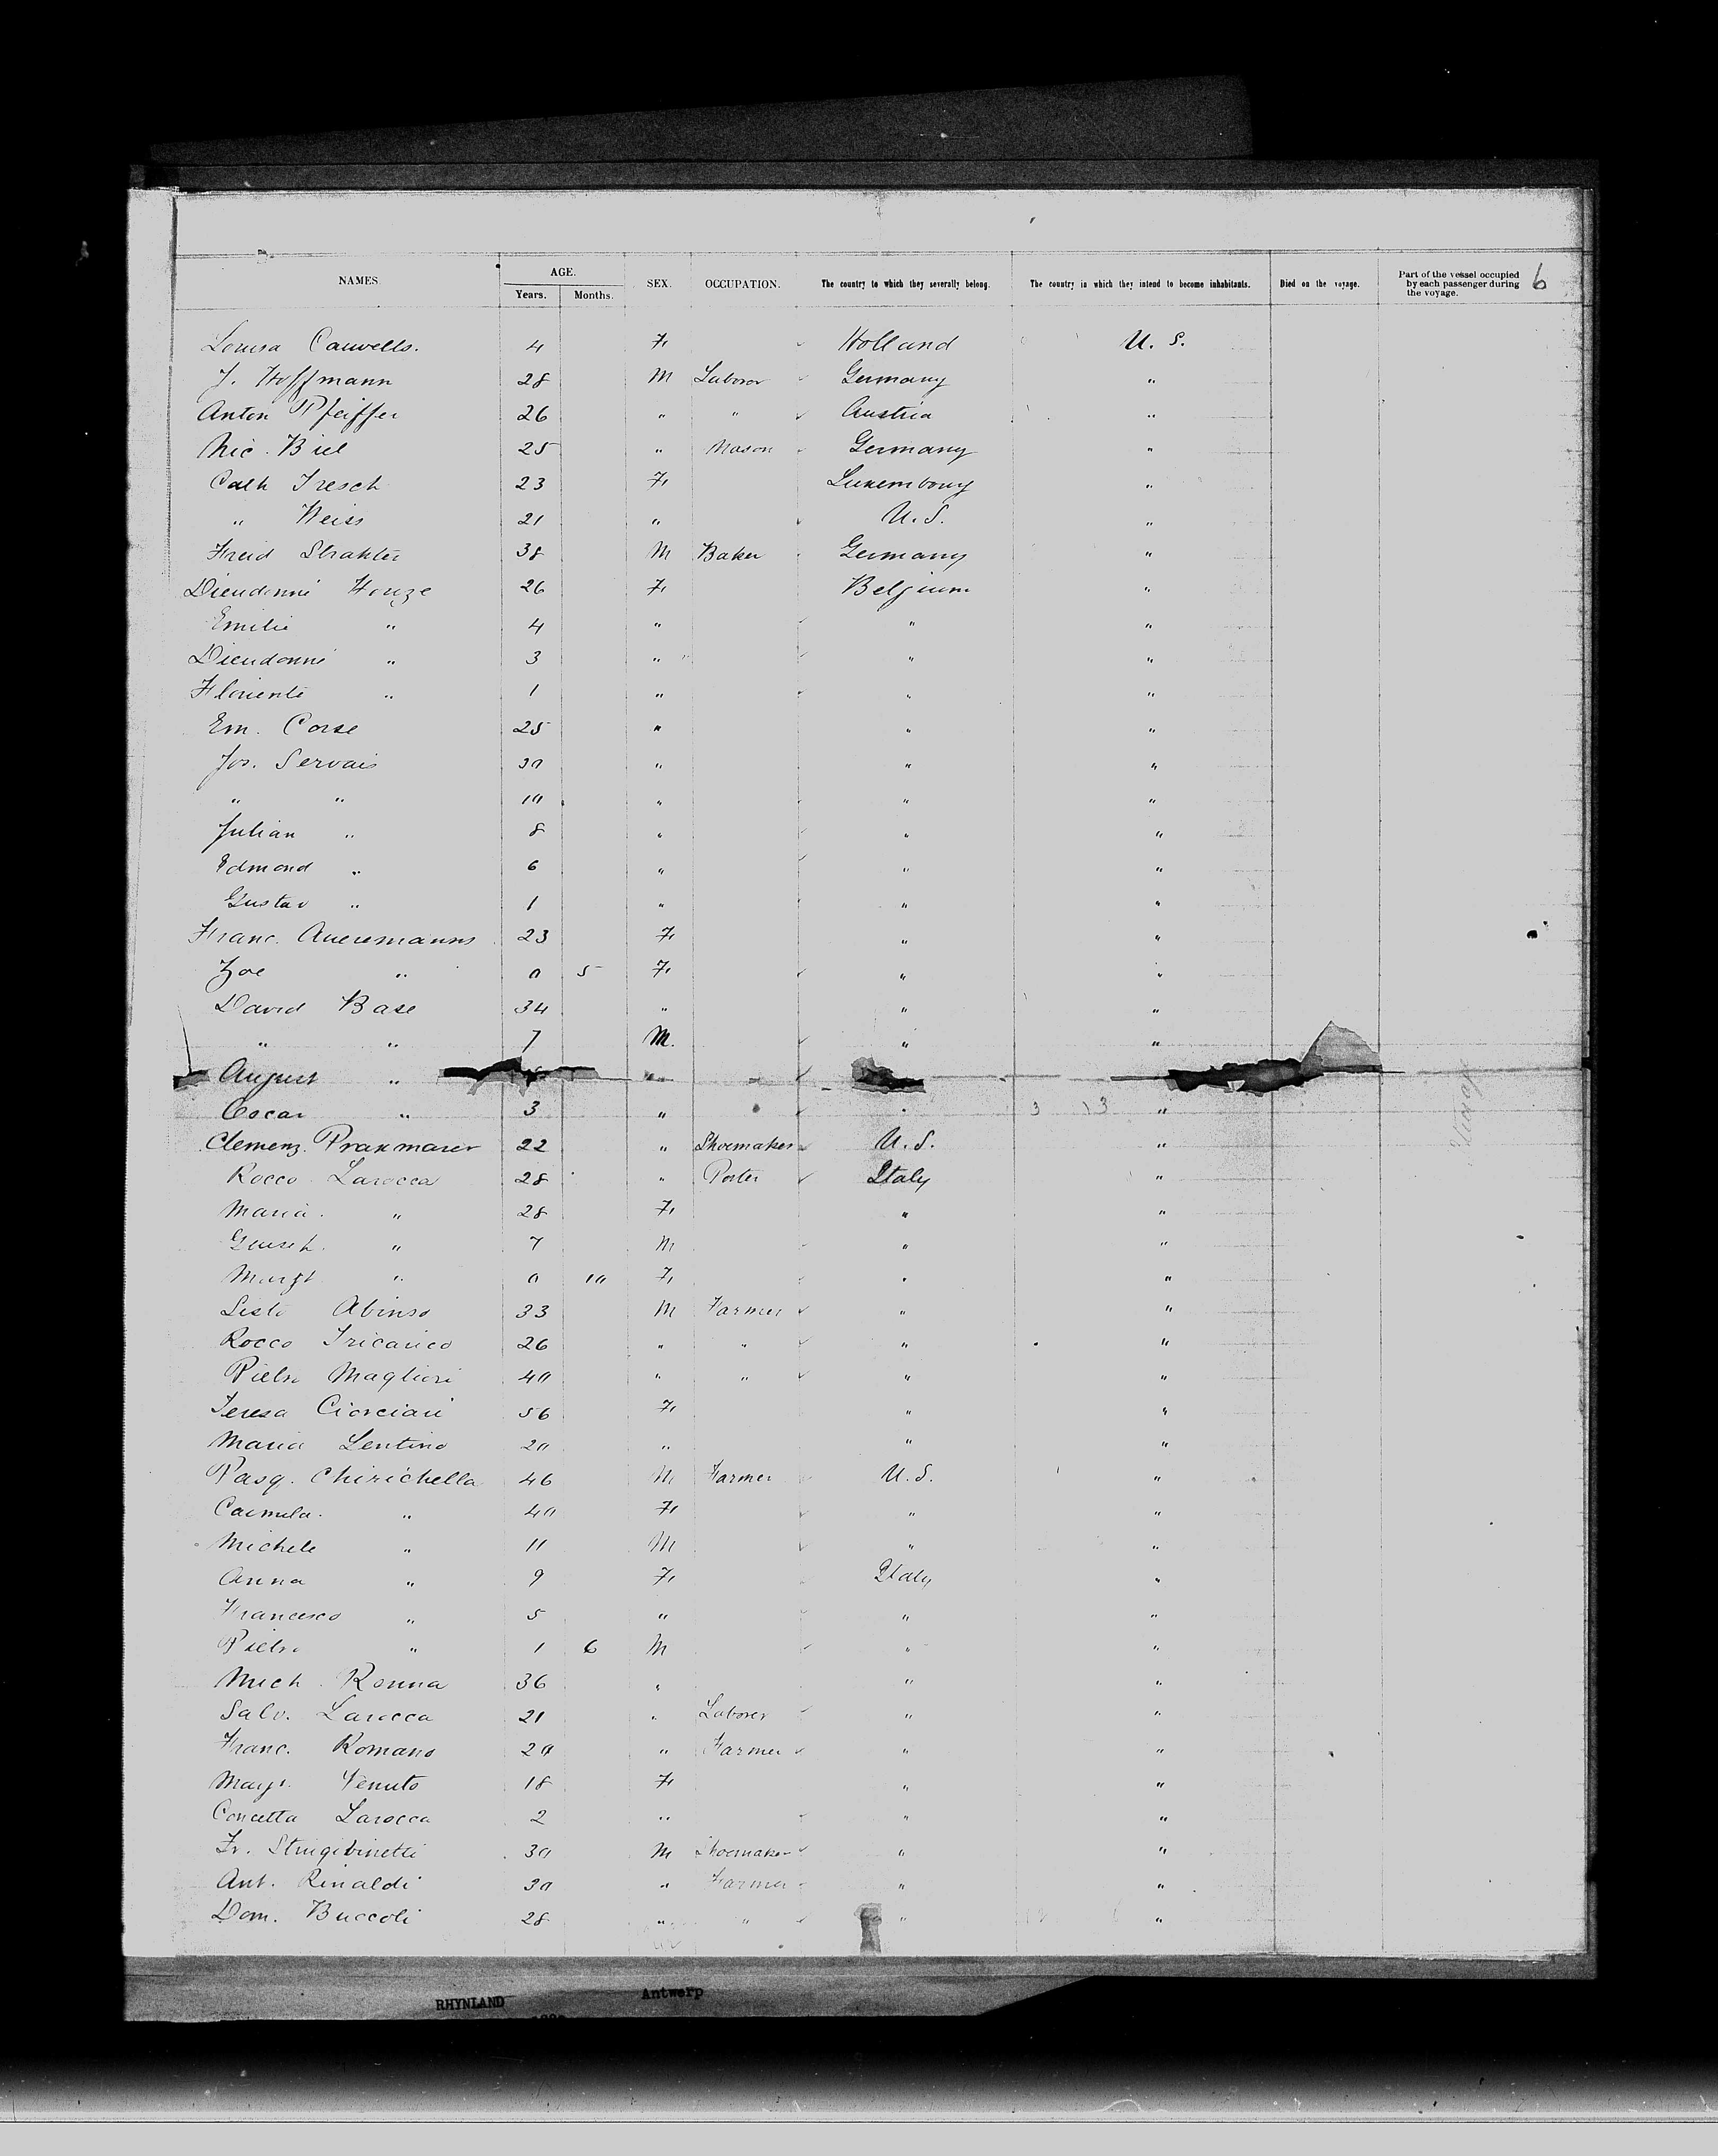 NAMES. AGE. SEX. OCCUPATION. The country to which they severally belong. The country in which they intend to become inhabitants. Died on the voyage. Part of the vessel occupied by each passenger during the voyage. 6
Years. Months.
Louisa Cauwells. 4 F. Holland U. S.
J. Hoffmann 28 M Laborer Germany "
Anton Pfeiffer 26 " " Austria "
Nic. Biel 25 " Mason Germany "
Cath Tresch 23 F. Luxembourg "
" Weiss 21 " U. S. "
Fried Strakter 38 M Baker Germany "
Dieudonné Houze 26 F. Belgium "
Emilie " 4 " " "
Dieudonné " 3 " " "
Floriente " 1 " " "
Em. Corse 25 " " "
Jos. Servais 30 " " "
" " 10 " " "
Julian " 8 " " "
Edmond " 6 " " "
Gustav " 1 " " "
Franc. Aueremanns 23 F. " "
Zoe " 0 5 F. " "
David Base 34 " " "
" " 7 M. " "
August "
Oscar " 3 " " "
Clemenz Praxmarer 22 " Shoemaker U. S. "
Rocco Larocca 28 " Porter Italy "
Maria. " 28 F. " "
Giuseh. " 7 M " "
Margt " 0 10 F. " "
Sisto Abinso 33 M Farmer " "
Rocco Tricarico 26 " " " "
Pietro Magliori 40 " " " "
Teresa Ciorciari 56 F. " "
Maria Lentino 20 " " "
Pasq. Chirichella 46 M Farmer U. S. "
Carmela. " 40 F. " "
Michele " 11 M " "
Anna " 9 F. Italy "
Francesco " 5 " " "
Pietro " 1 6 M " "
Mich. Renna 36 " " "
Salv. Larocca 21 " Laborer " "
Franc. Romano 29 " Farmer " "
Margt. Venuto 18 F. " "
Concetta Larocca 2 " " "
Fr. Strigibinetti 30 M Shoemaker " "
Ant. Rinaldi 30 " Farmer " "
Dom. Buccoli 28 " " " "
RHYNLAND Antwerp